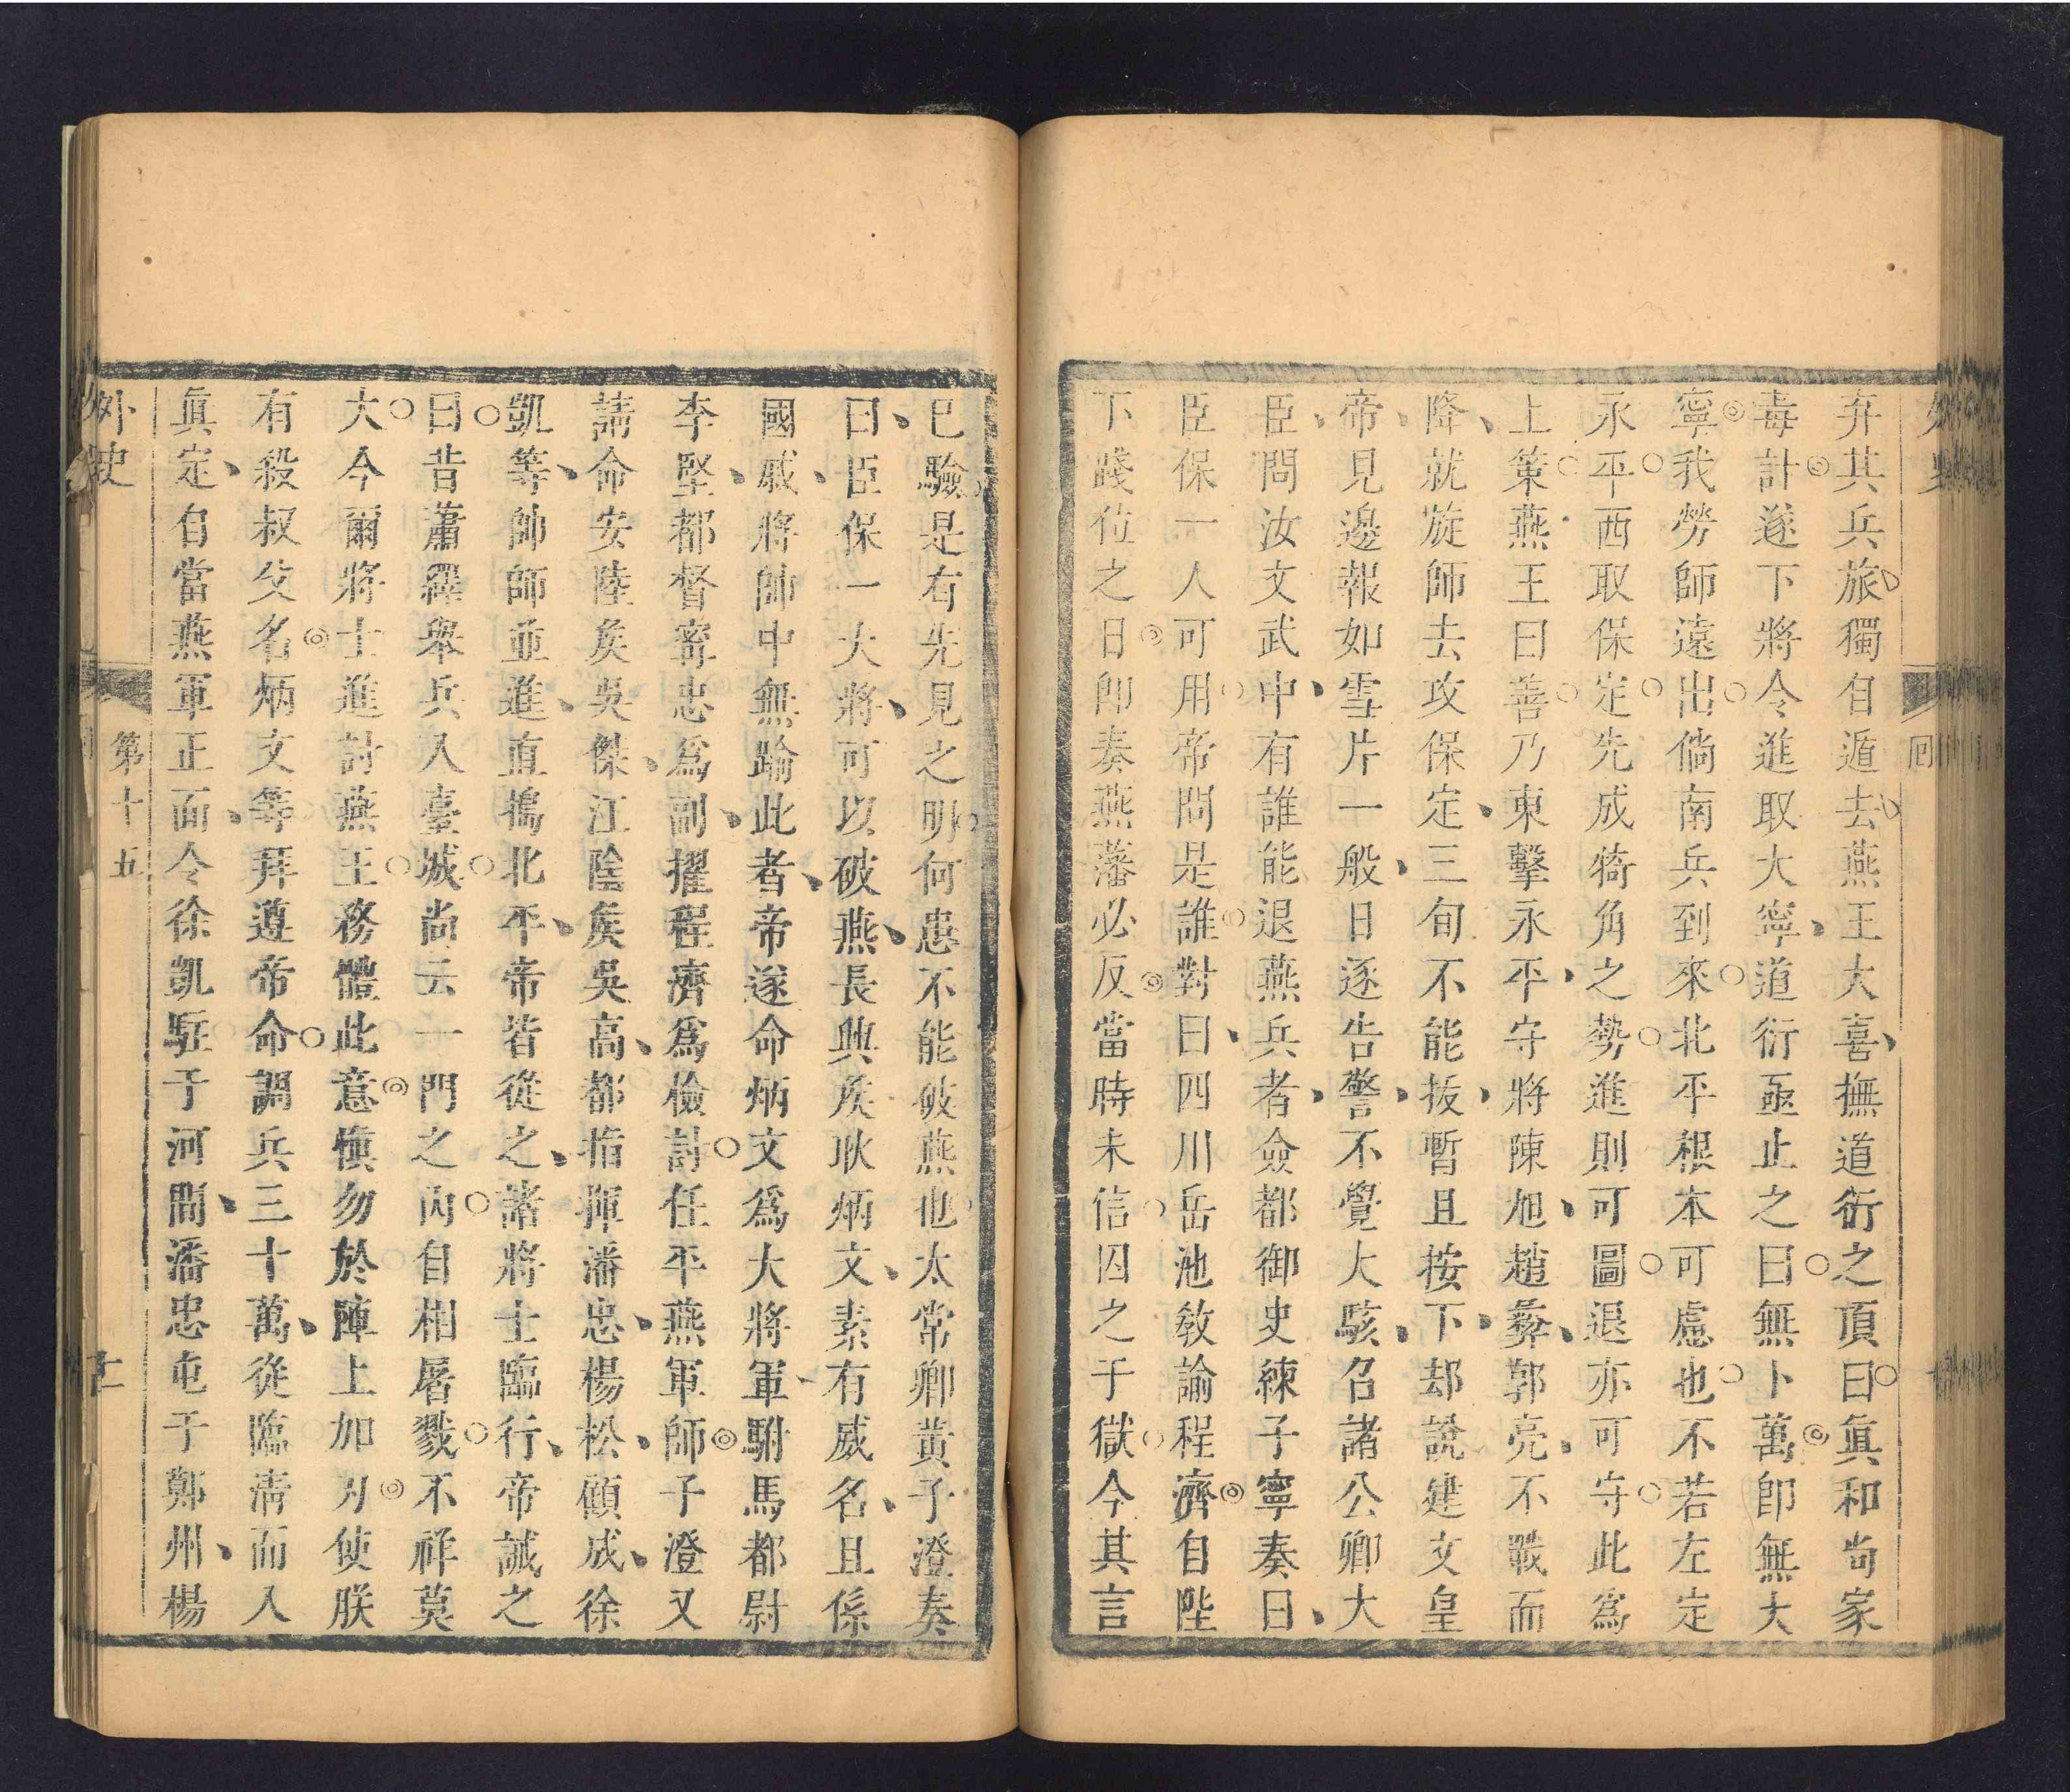 弃其兵旅獨自遁去燕王大喜撫道衍之頂曰眞和尚家
毒計遂下將令進取大寧道衍亟止之曰無卜萬卽無大
寧我勞師遠出倘南兵到來北平根本可慮也不若左定
永平西取保定先成犄角之勢進則可圖退亦可守此爲
上策燕王曰善乃東擊永平守將陳旭趙彝郭亮不戰而
降就旋師去攻保定三旬不能抜暫且按下却說建文皇
帝見邊報如雪片一般日逐告警不覺大駭召諸公卿大
臣問汝文武中有誰能退燕兵者僉都御史練子寧奏曰
臣保一人可用帝問是誰對曰四川岳池敎諭程濟自陛
下踐位之日卽奏燕藩必反當時未信囚之于獄今其言
已驗是有先見之明何患不能破燕也太常卿黃子澄奏
曰臣保一大將可以破燕長興矦耿炳文素有威名且係
國戚將帥中無踰此者帝遂命炳文爲大將軍駙馬都尉
李堅都督寗忠爲副擢程濟爲檢討任平燕軍師子澄又
請命安陸矦吳傑江陰矦吳高都指揮潘忠楊松顧成徐
凱等帥師並進直搗北平帝皆從之諸將士臨行帝誡之
曰昔蕭繹舉兵入臺城尚云一門之內自相屠戮不祥莫
大今爾將士進討燕王務體此意愼勿於陣上加刃使朕
有殺叔父名炳文等拜遵帝命調兵三十萬從臨淸而入
眞定自當燕軍正面令徐凱駐于河間潘忠屯于鄭州楊
外史
第十五
十一